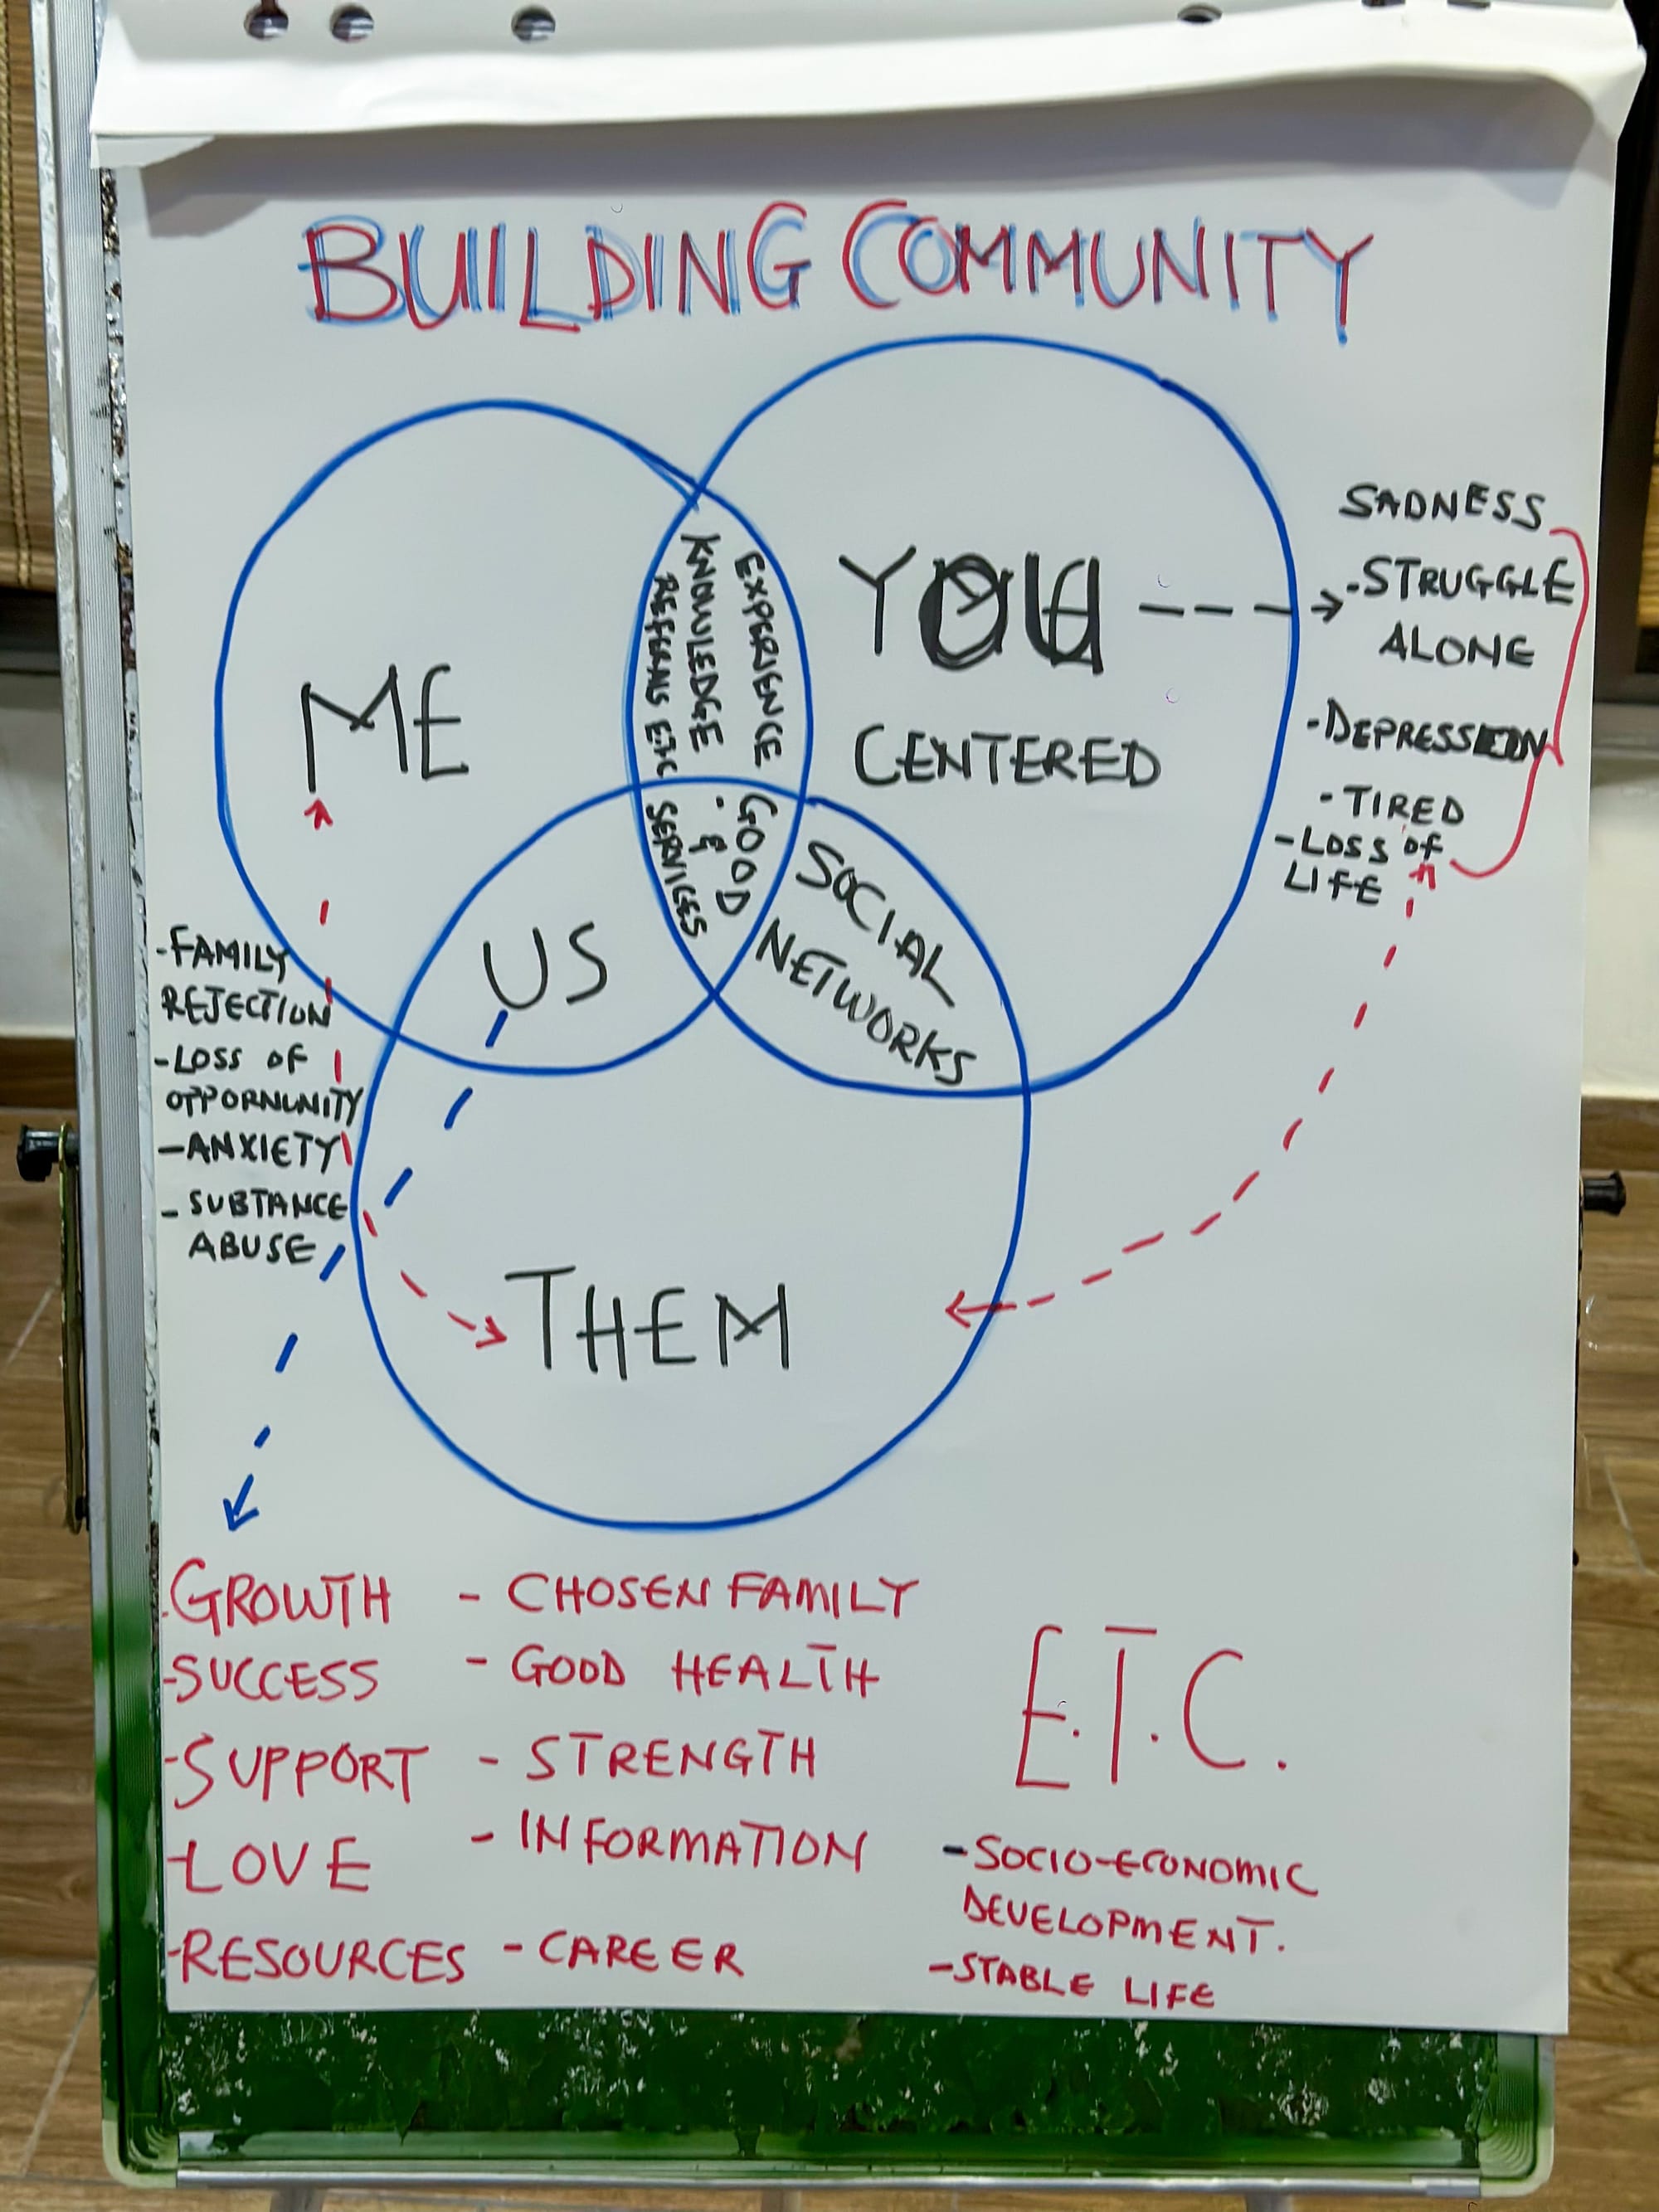 BUILDING COMMUNITY
ME
EXPERIENCE
KNOWLEDGE
REFERALS ETC
YOU
CENTERED
SADNESS
-STRUGGLE
ALONE
-DEPRESSION
-TIRED
-LOSS OF
LIFE
GOOD
&
SERVICES
SOCIAL
NETWORKS
US
-FAMILY
REJECTION
-LOSS OF
OPPORNUNITY
-ANXIETY
- SUBTANCE
ABUSE
THEM
-GROWTH
-SUCCESS
-SUPPORT
-LOVE
-RESOURCES
- CHOSEN FAMILY
- GOOD HEALTH
- STRENGTH
- INFORMATION
- CAREER
E.T.C.
-SOCIO-ECONOMIC
DEVELOPMENT.
-STABLE LIFE